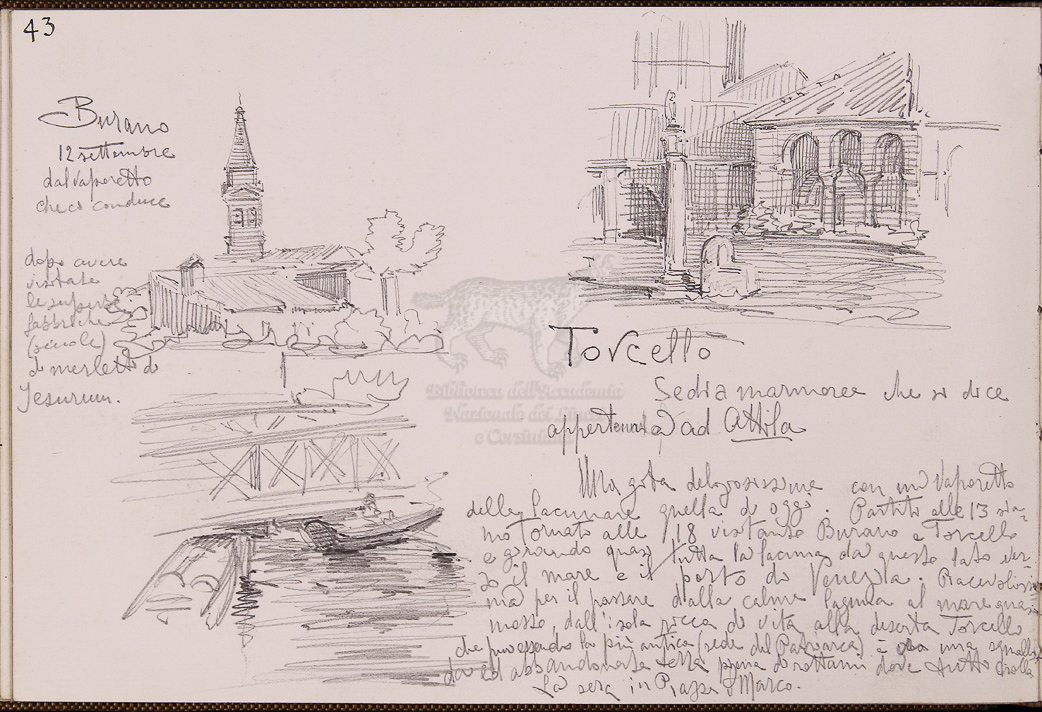 43
Burano
12 settembre
dal vaporetto
che ci conduce
dopo avere
visitate
le superbe
fabbriche
(scuole)
di merletti di
Jesurum.
Torcello
Sedia marmorea che si dice
appartenuta ad Attila
Una gita deliziosissima con un vaporetto
della lacunare quella di oggi. Partito alle 13 sia-
mo tornato alle 18 visitando Burano e Torcello
e girando quasi tutta la lacuna da questo lato ver-
so il mare e il porto di Venezia. Piacevolissi
ma per il passare dalla calma laguna al mare quasi
mosso, dall'isola ricca di vita alla deserta Torcello
che pur essendo la più antica (sede del Patriarca) è una squalli-
da ed abbandonata terra piena di rottami dove tutto crolla
La sera in Piazza S Marco.
Biblioteca dell'Accademia
Nazionale dei Lincei
e Corsiniana